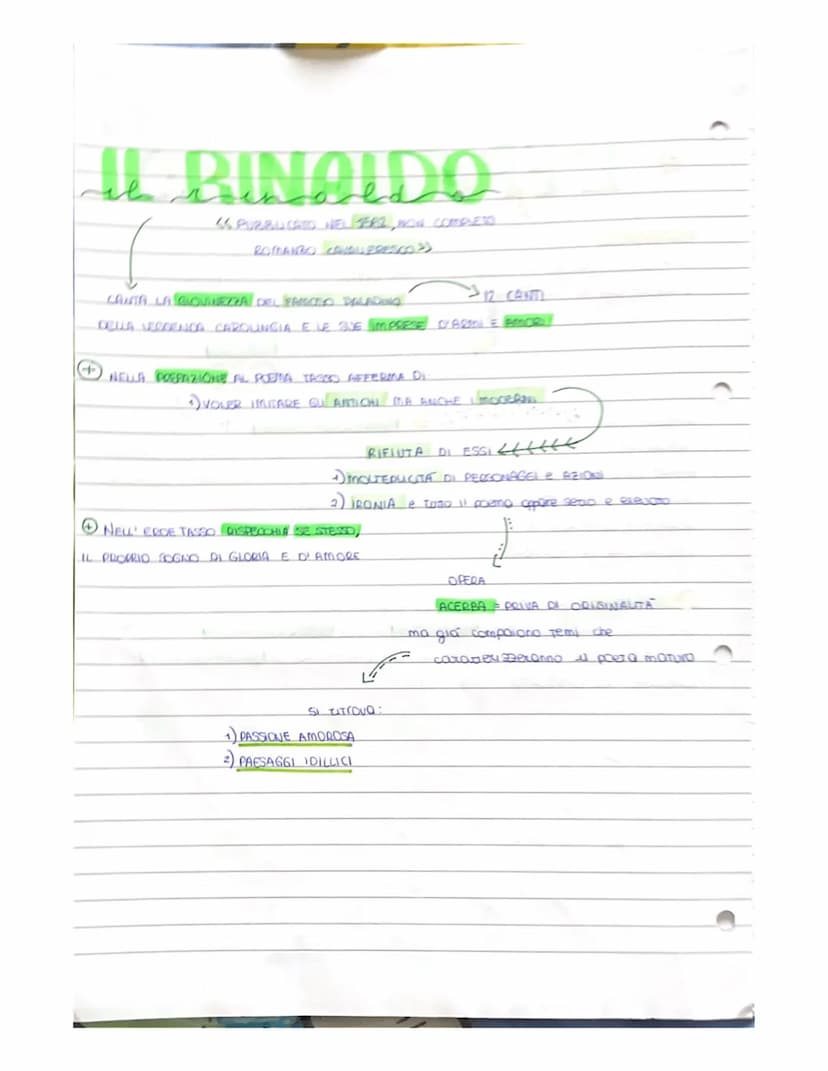 IL RINALDO
il rinaldo
<< PUBBLICATO NEL 1562, NON COMPLETO
ROMANZO CAVALLERESCO >>
CANTA LA GIOVINEZZA DEL FAMOSO PALADINO
12 CANTI
DELLA LEGGENDA CAROLINGIA E LE SUE IMPRESE D'ARMI E AMORI
+ NELLA PREFAZIONE AL POEMA TASSO AFFERMA DI
1) VOLER IMITARE GLI ANTICHI MA ANCHE I MODERNI
RIFIUTA DI ESSI
1) MOLTEPLICITÀ DI PERSONAGGI e AZIONI
2) IRONIA e TUTTO il poema appare serio e elevato
+ NELL' EROE TASSO RISPECCHIA SE STESSO,
IL PROPRIO SOGNO DI GLORIA E D'AMORE
OPERA
ACERBA = PRIVA DI ORIGINALITÀ
ma già compaiono temi che
caratterizzeranno il poeta maturo
SI RITROVA:
1) PASSIONE AMOROSA
2) PAESAGGI IDILLICI